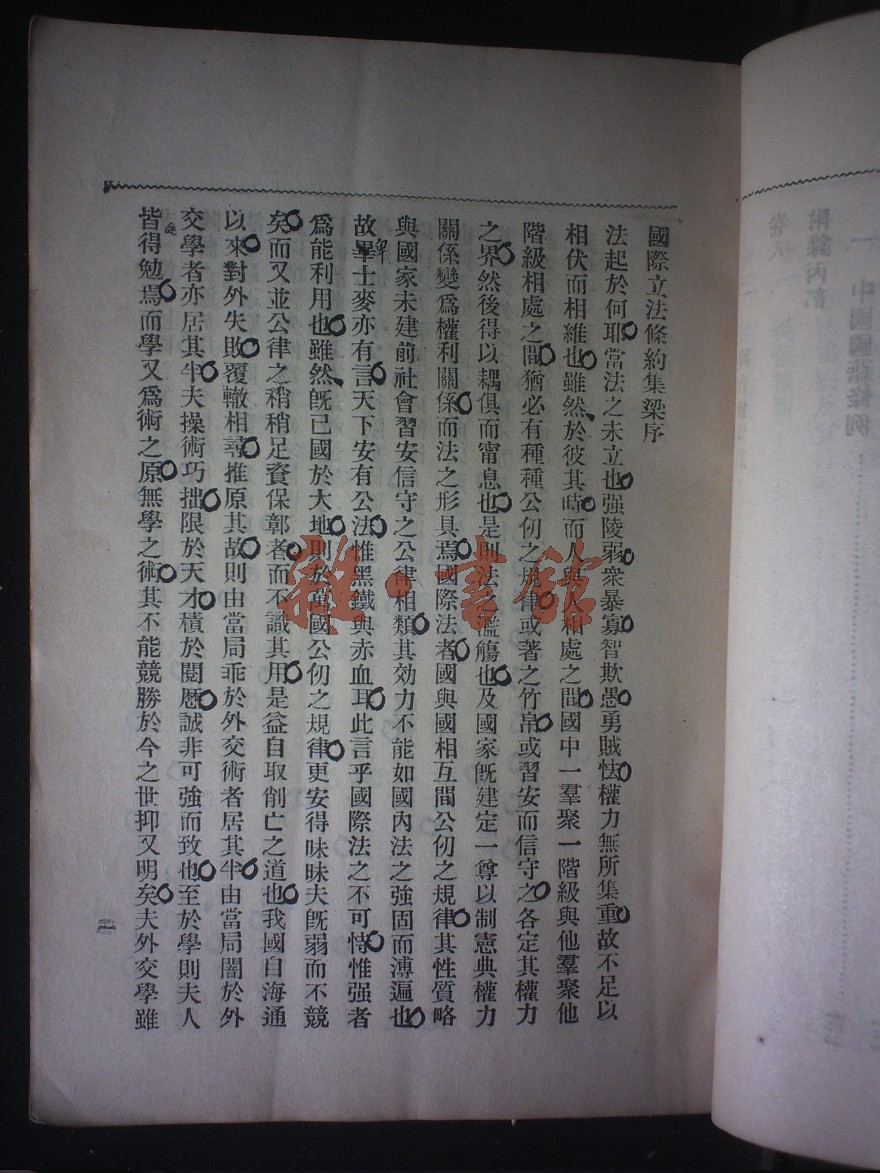 國際立法條約集梁序
法起於何耶當法之未立也强陵弱衆暴寡智欺愚勇賊怯權力無所集重故不足以
相伏而相維也雖然於彼其時而人與人相處之間國中一羣聚一階級與他羣聚他
階級相處之間猶必有種種公仞之規律或著之竹帛或習安而信守之各定其權力
之界然後得以耦俱而甯息也是則法之濫觴也及國家旣建定一尊以制憲典權力
關係變爲權利關係而法之形具焉國際法者國與國相互間公仞之規律其性質略
與國家未建前社會習安信守之公律相類其効力不能如國內法之強固而溥遍也
故畢士麥亦有言天下安有公法惟黑鐵與赤血耳此言乎國際法之不可恃惟强者
爲能利用也雖然旣已國於大地則於萬國公仞之規律更安得昧昧夫旣弱而不競
矣而又並公律之稍稍足資保鄣者而不識其用是益自取削亡之道也我國自海通
以來對外失敗覆轍相尋推原其故則由當局乖於外交術者居其半由當局闇於外
交學者亦居其半夫操術巧拙限於天才積於閱歷誠非可強而致也至於學則夫人
皆得勉焉而學又爲術之原無學之術其不能競勝於今之世抑又明矣夫外交學雖
一
雜·書館
附錄內部
卷八
一 中國國籍條例